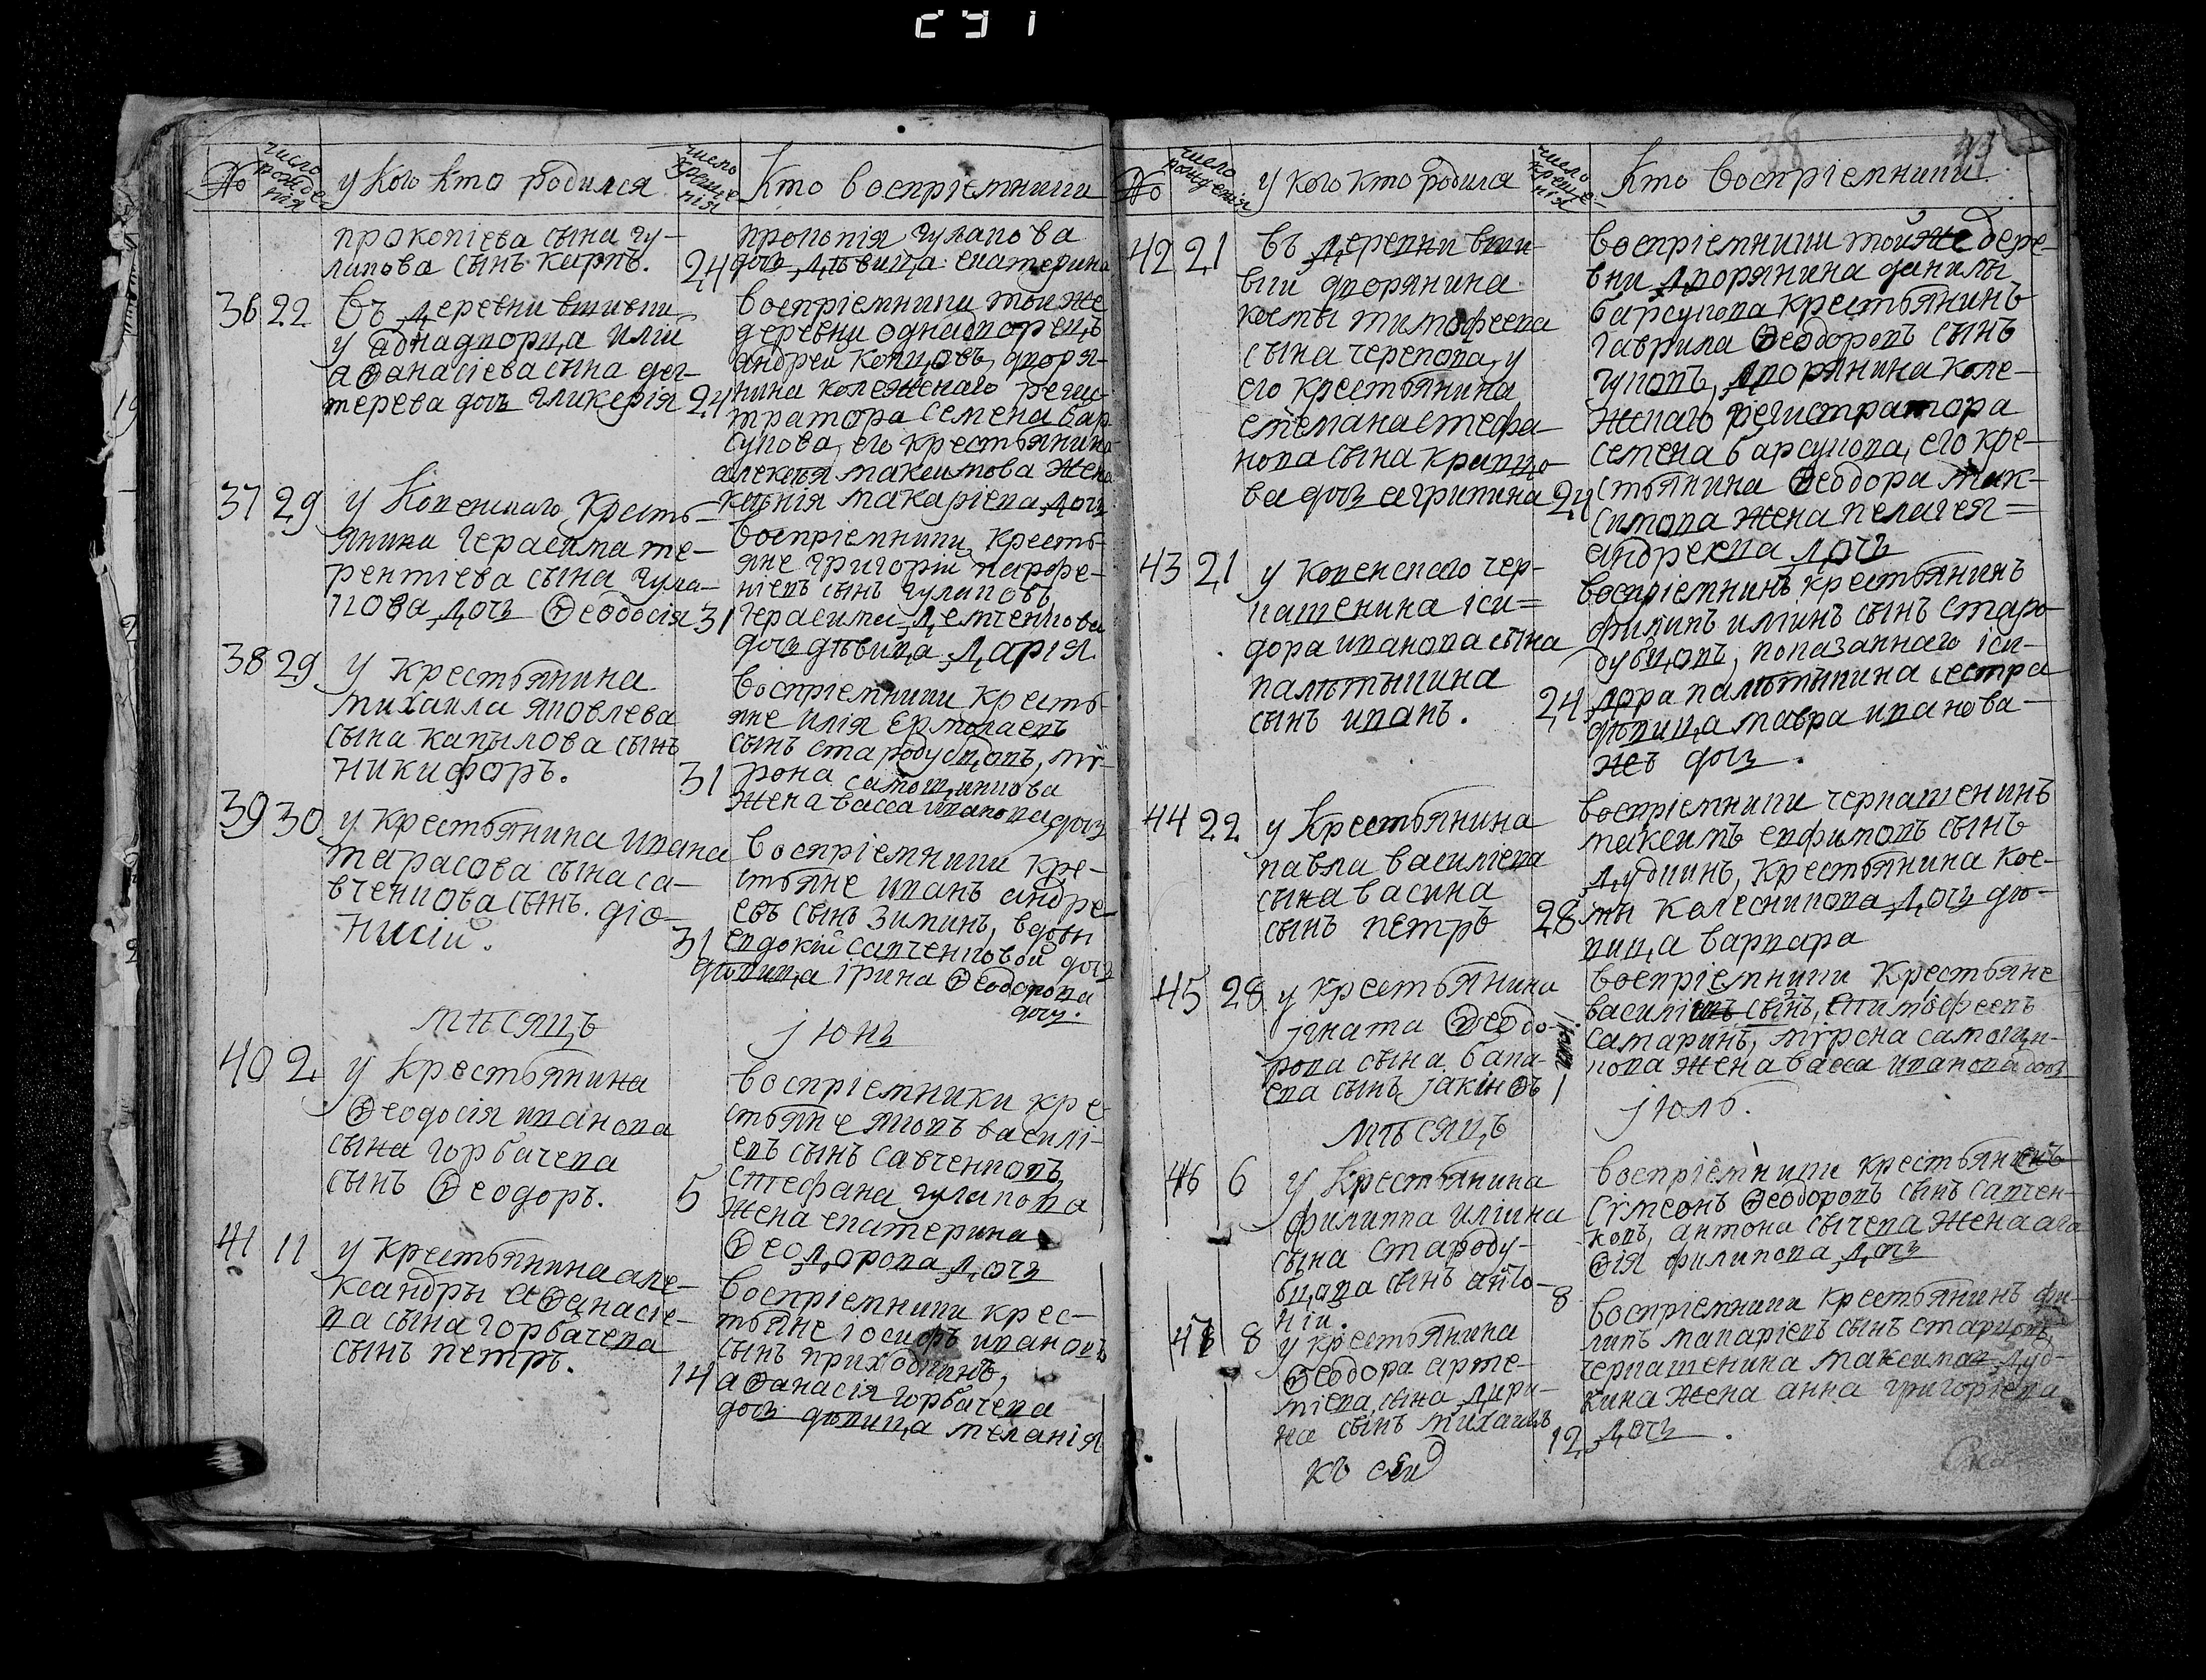 291
№
число рождения
у кого кто родился
число крещенія
Кто воспріемники
прокопіева сына гу-
лакова сынъ карпъ.
24
прокопія гулакова
дочь дѣвица екатерина
36 22
Въ деревни
у аднадворца иліи
аѳанасіева сына дег-
терева дочь гликерія
24
воспріемники тои же
деревни однадворецъ
андреи копцовъ, дворя-
нина колежскаго регис-
тратора семена бар
сукова, его крестьянина
алексѣя максимова жена
ксѣнія макаріева дочь
37 29
у Копенскаго кресть-
янина герасима те-
рентіева сына гула-
кова дочь Ѳеодосія
31
воспріемники кресть-
яне григорій парфе-
ніевъ сынъ гулаковъ
герасима демченкова
дочь дѣвица дарія.
38 29
у крестьянина
михаила яковлева
сына капылова сынъ
никифоръ.
31
воспріемники кресть-
яне илія ермолаевъ
сынъ стародубцовъ, мѵ-
рона самощенкова
жена васса иванова дочь
39 30
у крестьянина ивана
тарасова сына са-
вченкова сынъ діо-
нисіи.
31
воспріемники кре-
стьяне иванъ андре-
евъ сынъ зиминъ, вдовы
евдокіи савченковои дочь
дѣвица ірина Ѳеодорова
дочь.
мѣсяцъ
іюнь
40 2
у крестьянина
Ѳеодосія иванова
сына горбачева
сынъ Ѳеодоръ.
5
воспріемники кре
стьяне яковъ василі-
евъ сынъ савченковъ,
стефана гулакова
жена екатерина
Ѳеодорова дочь
41 11
у крестьянина але-
ксандры аѳанасіе-
ва сына горбачева
сынъ петръ.
14
воспріемники крес-
тьяне іосифъ ивановъ
сынъ приходкинъ,
аѳанасія горбачева
дочь дѣвица меланія
38
№
число рожденія
у кого кто родился
число крещенія
Кто воспріемники
42 21
въ деревни
дворянина
космы тимофеева
сына черепова, у
его крестьянина
стефа-
нова сына кривцо-
ва дочь агрипина
24
воспріемники тойже дере-
вни дворянина данилы
барсукова крестьянинъ
гаврила Ѳеодоровъ сынъ
гуковъ, дворянина коле-
жскаго регистратора
семена барсукова, его кре-
стьянина Ѳеодора мак-
симова жена пелагея=
андреева дочь
43 21
у копенскаго чер-
кашенина іси=
дора иванова сына
калѣтыкина
сынъ иванъ.
24
воспріемникъ крестьянинъ
филипъ илїинъ сынъ старо-
дубцовъ, показаннаго іси-
дора калѣтыкина сестра
дѣвица мавра иванова-
жъ дочь.
44 22
у крестьянина
павла василіева
сына васина
сынъ петръ
28
воспріемники черкашенинъ
максимъ евфимовъ сынъ
дудкинъ, крестьянина кос-
мы колесникова дочь дѣ-
вица варвара
45 28
у крестьянина
ігната Ѳеодо-
рова сына бака-
ева сынъ іакінѳъ
1
воспріемники крестьяне
василіи
самаринъ, мѵрона самощен-
кова жена васса иванова дочь
мѣсяцъ
іюль.
46 6
у крестьянина
филиппа иліина
сына староду-
бцова сынъ анто-
ніи.
8
воспріемники крестьянинъ
сѵмеонъ Ѳеодоровъ сынъ савчен-
ковъ, антона сычева жена ага
ѳія филипова дочь
47 8
у крестьянина
Ѳеодора арте-
міева сына
сынъ михаилъ
12
воспріемники крестьянинъ фи-
липъ макаріевъ сынъ
черкашенина максима дуд-
кина жена анна григоріева
дочь.
къ сеи